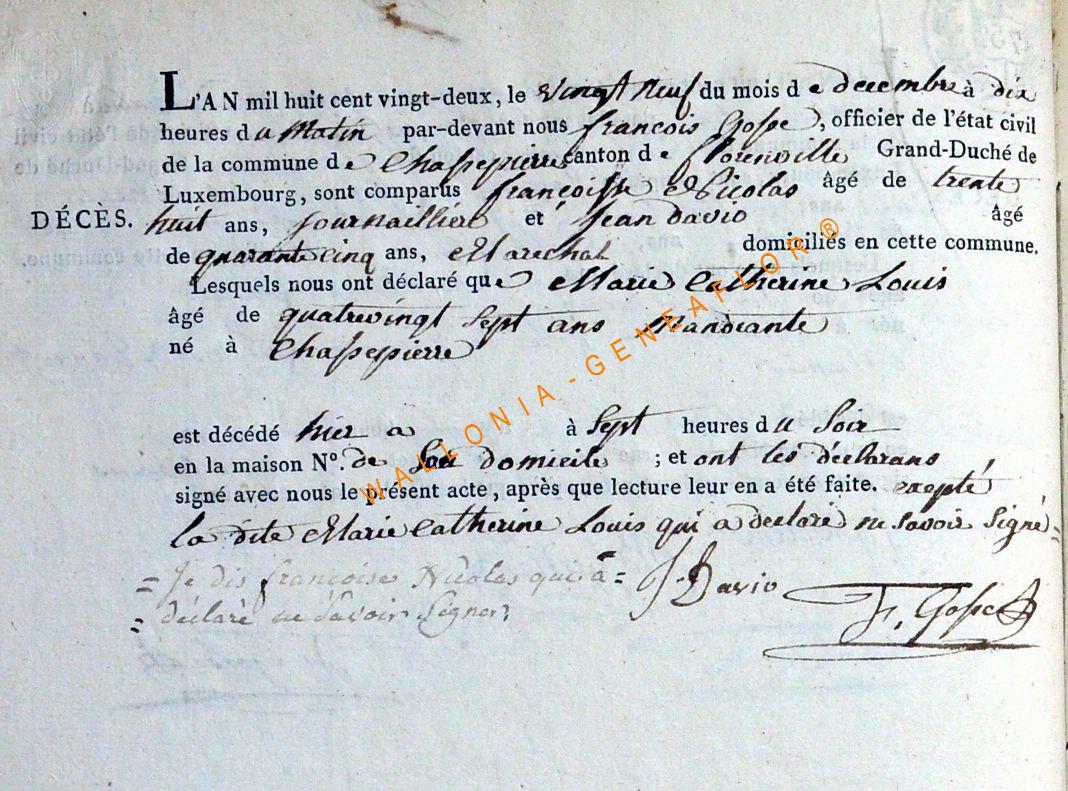 L'AN mil huit cent vingt-deux, le vingt neuf du mois de decembre à dix
heures du Matin par-devant nous françois Gosse, officier de l'état civil
de la commune de Chassepierre canton de florenville Grand-Duché de
Luxembourg, sont comparus françoise Nicolas âgé de trente
DÉCÈS. huit ans, journailliére et jean davio âgé
de quarante cinq ans, Marechal domiciliés en cette commune.
Lesquels nous ont déclaré que Marie Catherine Louis
âgé de quatrevingt sept ans Mandiante
né à Chassepierre
est décédé hier a à sept heures du Soir
en la maison N°. de son domicile ; et ont les déclarans
signé avec nous le présent acte, après que lecture leur en a été faite. exepté
la dite Marie Catherine Louis qui a declaré ne savoir signé =
= Je dis françoise Nicolas qui à =
= déclaré ne sávoir signer;
J. Davio
F. Gosse
WALLONIA - GENEAFLOR ®